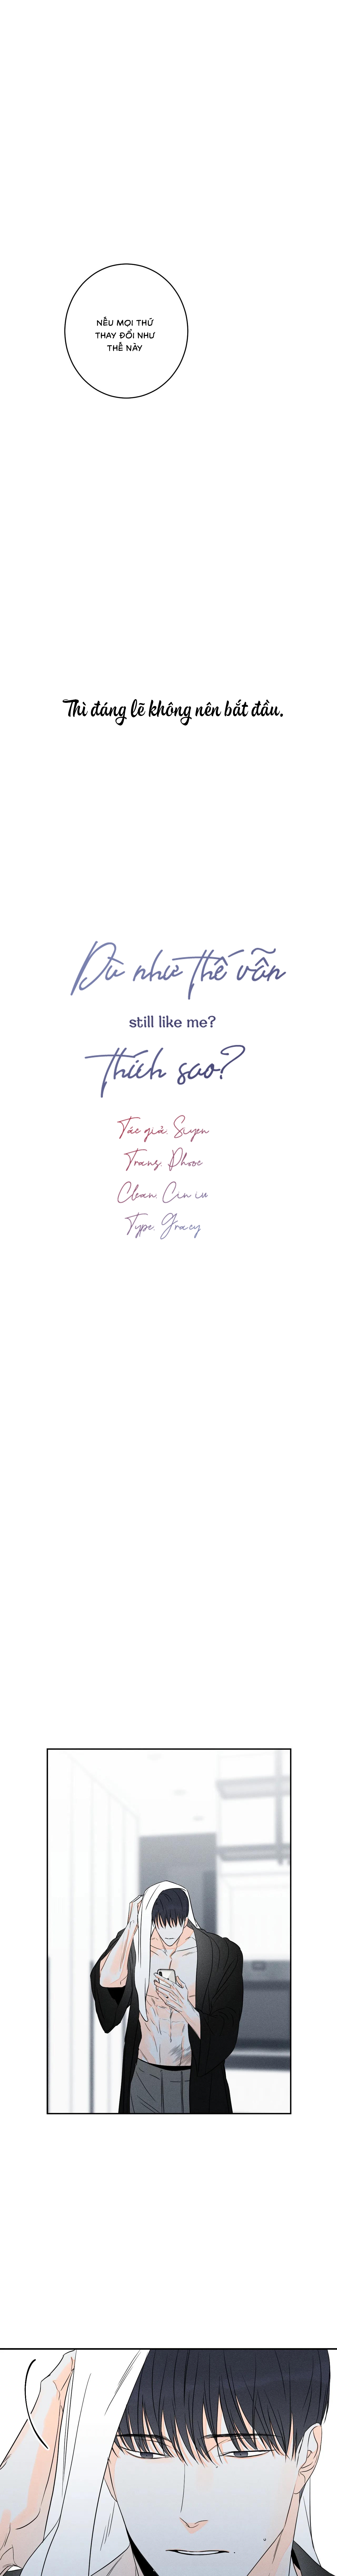 NẾU MỌI THỨ
THAY ĐỔI NHƯ
THẾ NÀY
Thì đáng lẽ không nên bắt đầu.
Dù như thế vẫn
still like me?
thích sao?
Tác giả: Siyen
Trans: Phooc
Clean: Cin iu
Type: Gracy